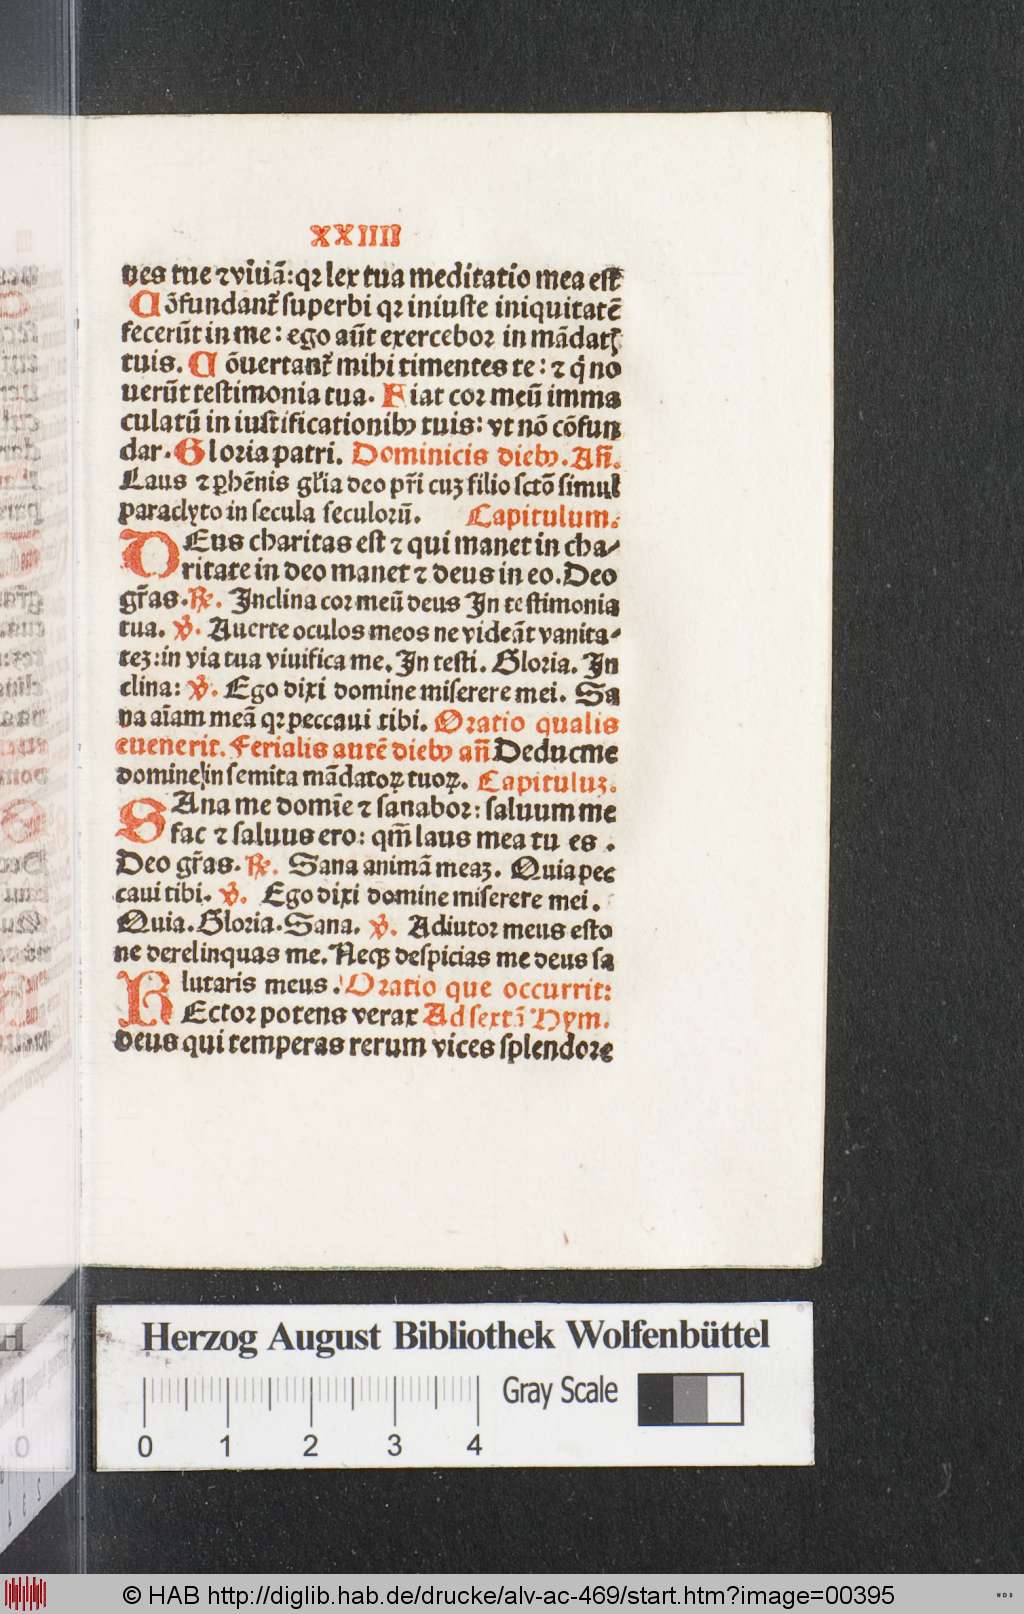 XXIIII
nes tue ⁊ viuā: qꝛ lex tua meditatio mea est
Cōfundant᷑ superbi qꝛ iniuste iniquitatē
fecerūt in me: ego aūt exercebor in mādatꝭ
tuis. Cōuertant᷑ mihi timentes te: ⁊ q̇ no
uerūt testimonia tua. Fiat cor meū imma
culatū in iustificationibꝫ tuis: vt nō cōfun
dar. Gloria patri. Dominicis diebꝫ. Añ.
Laus ⁊ ꝑhēnis gl̃ia deo pr̃i cuꝫ filio sctō simul
paraclyto in secula seculorū. Capitulum.
DEus charitas est ⁊ qui manet in cha-
ritate in deo manet ⁊ deus in eo. Deo
gr̃as. ℞. Inclina cor meū deus In testimonia
tua. ℣. Auerte oculos meos ne videāt vanita-
teꝫ: in via tua viuifica me. In testi. Gloria. In
clina: ℣. Ego dixi domine miserere mei. Sa
na aīam meā qꝛ peccaui tibi. Oratio qualis
euenerit. Ferialis autē diebꝫ añ Deduc me
domine in semita mādatoꝝ tuoꝝ. Capituluꝫ.
SAna me domīe ⁊ sanabor: saluum me
fac ⁊ saluus ero: qm̃ laus mea tu es.
Deo gr̃as. ℞. Sana animā meaꝫ. Quia pec
caui tibi. ℣. Ego dixi domine miserere mei.
Quia. Gloria. Sana. ℣. Adiutor meus esto
ne derelinquas me. Neqꝫ despicias me deus sa
lutaris meus. Oratio que occurrit:
REctor potens verax Ad sextā Hym.
Deus qui temperas rerum vices splendore
Herzog August Bibliothek Wolfenbüttel
Gray Scale
0 1 2 3 4
© HAB http://diglib.hab.de/drucke/alv-ac-469/start.htm?image=00395